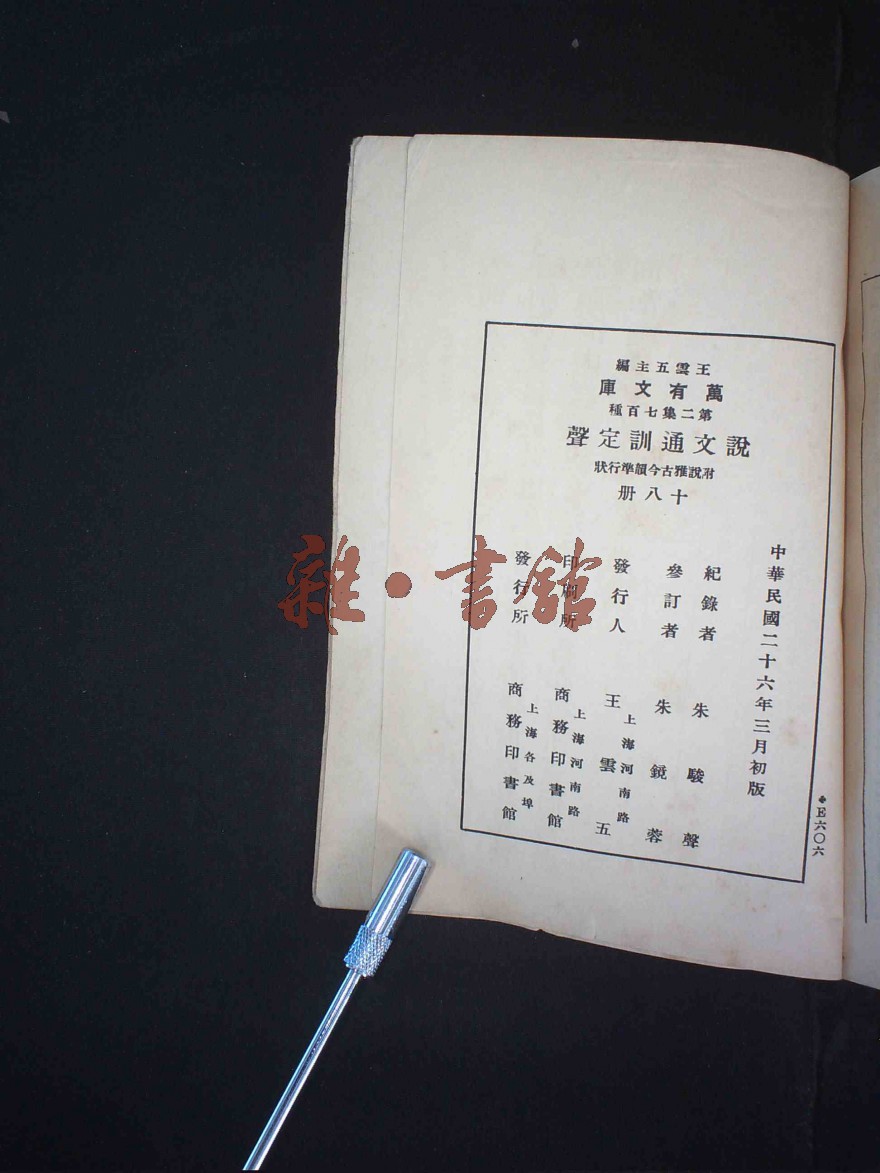 王雲五主編
萬有文庫
第二集七百種
說文通訓定聲
附說雅古今韻準行狀
十八册
中華民國二十六年三月初版
紀錄者 朱駿聲
參訂者 朱鏡蓉
發行人 王雲五
上海河南路
印刷所 商務印書館
上海河南路
發行所 商務印書館
上海及各埠
❖E六〇六
雜·書館